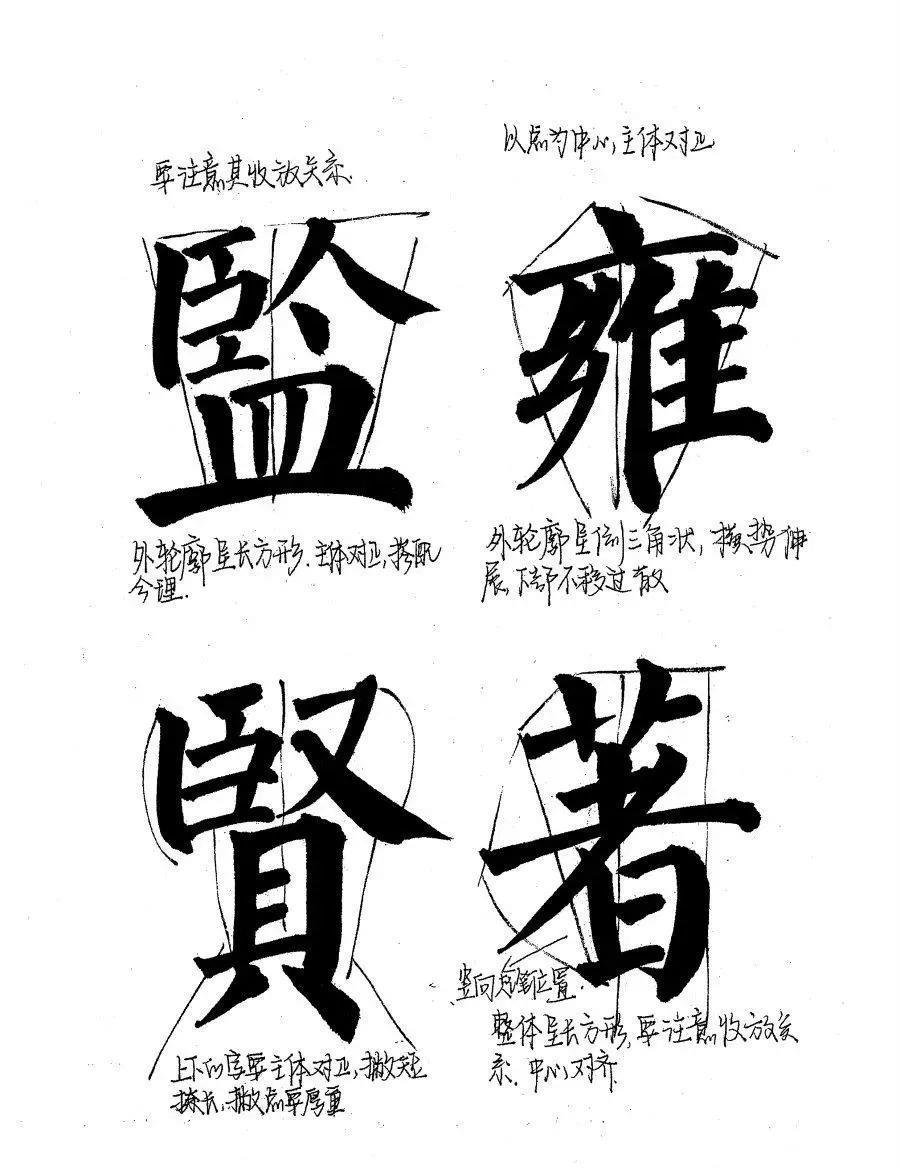 要注意其收放关系.
監
外轮廓呈长方形.主体对正,搭配
合理.
以点为中心,主体对正
雍
外轮廓呈倒三角状,横势伸
展,下部不移过散
賢
上下的字要主体对正,撇短
捺长,撇点要厚重
著
竖向起笔位置.
整体呈长方形,要注意收放关
系.中心对齐.